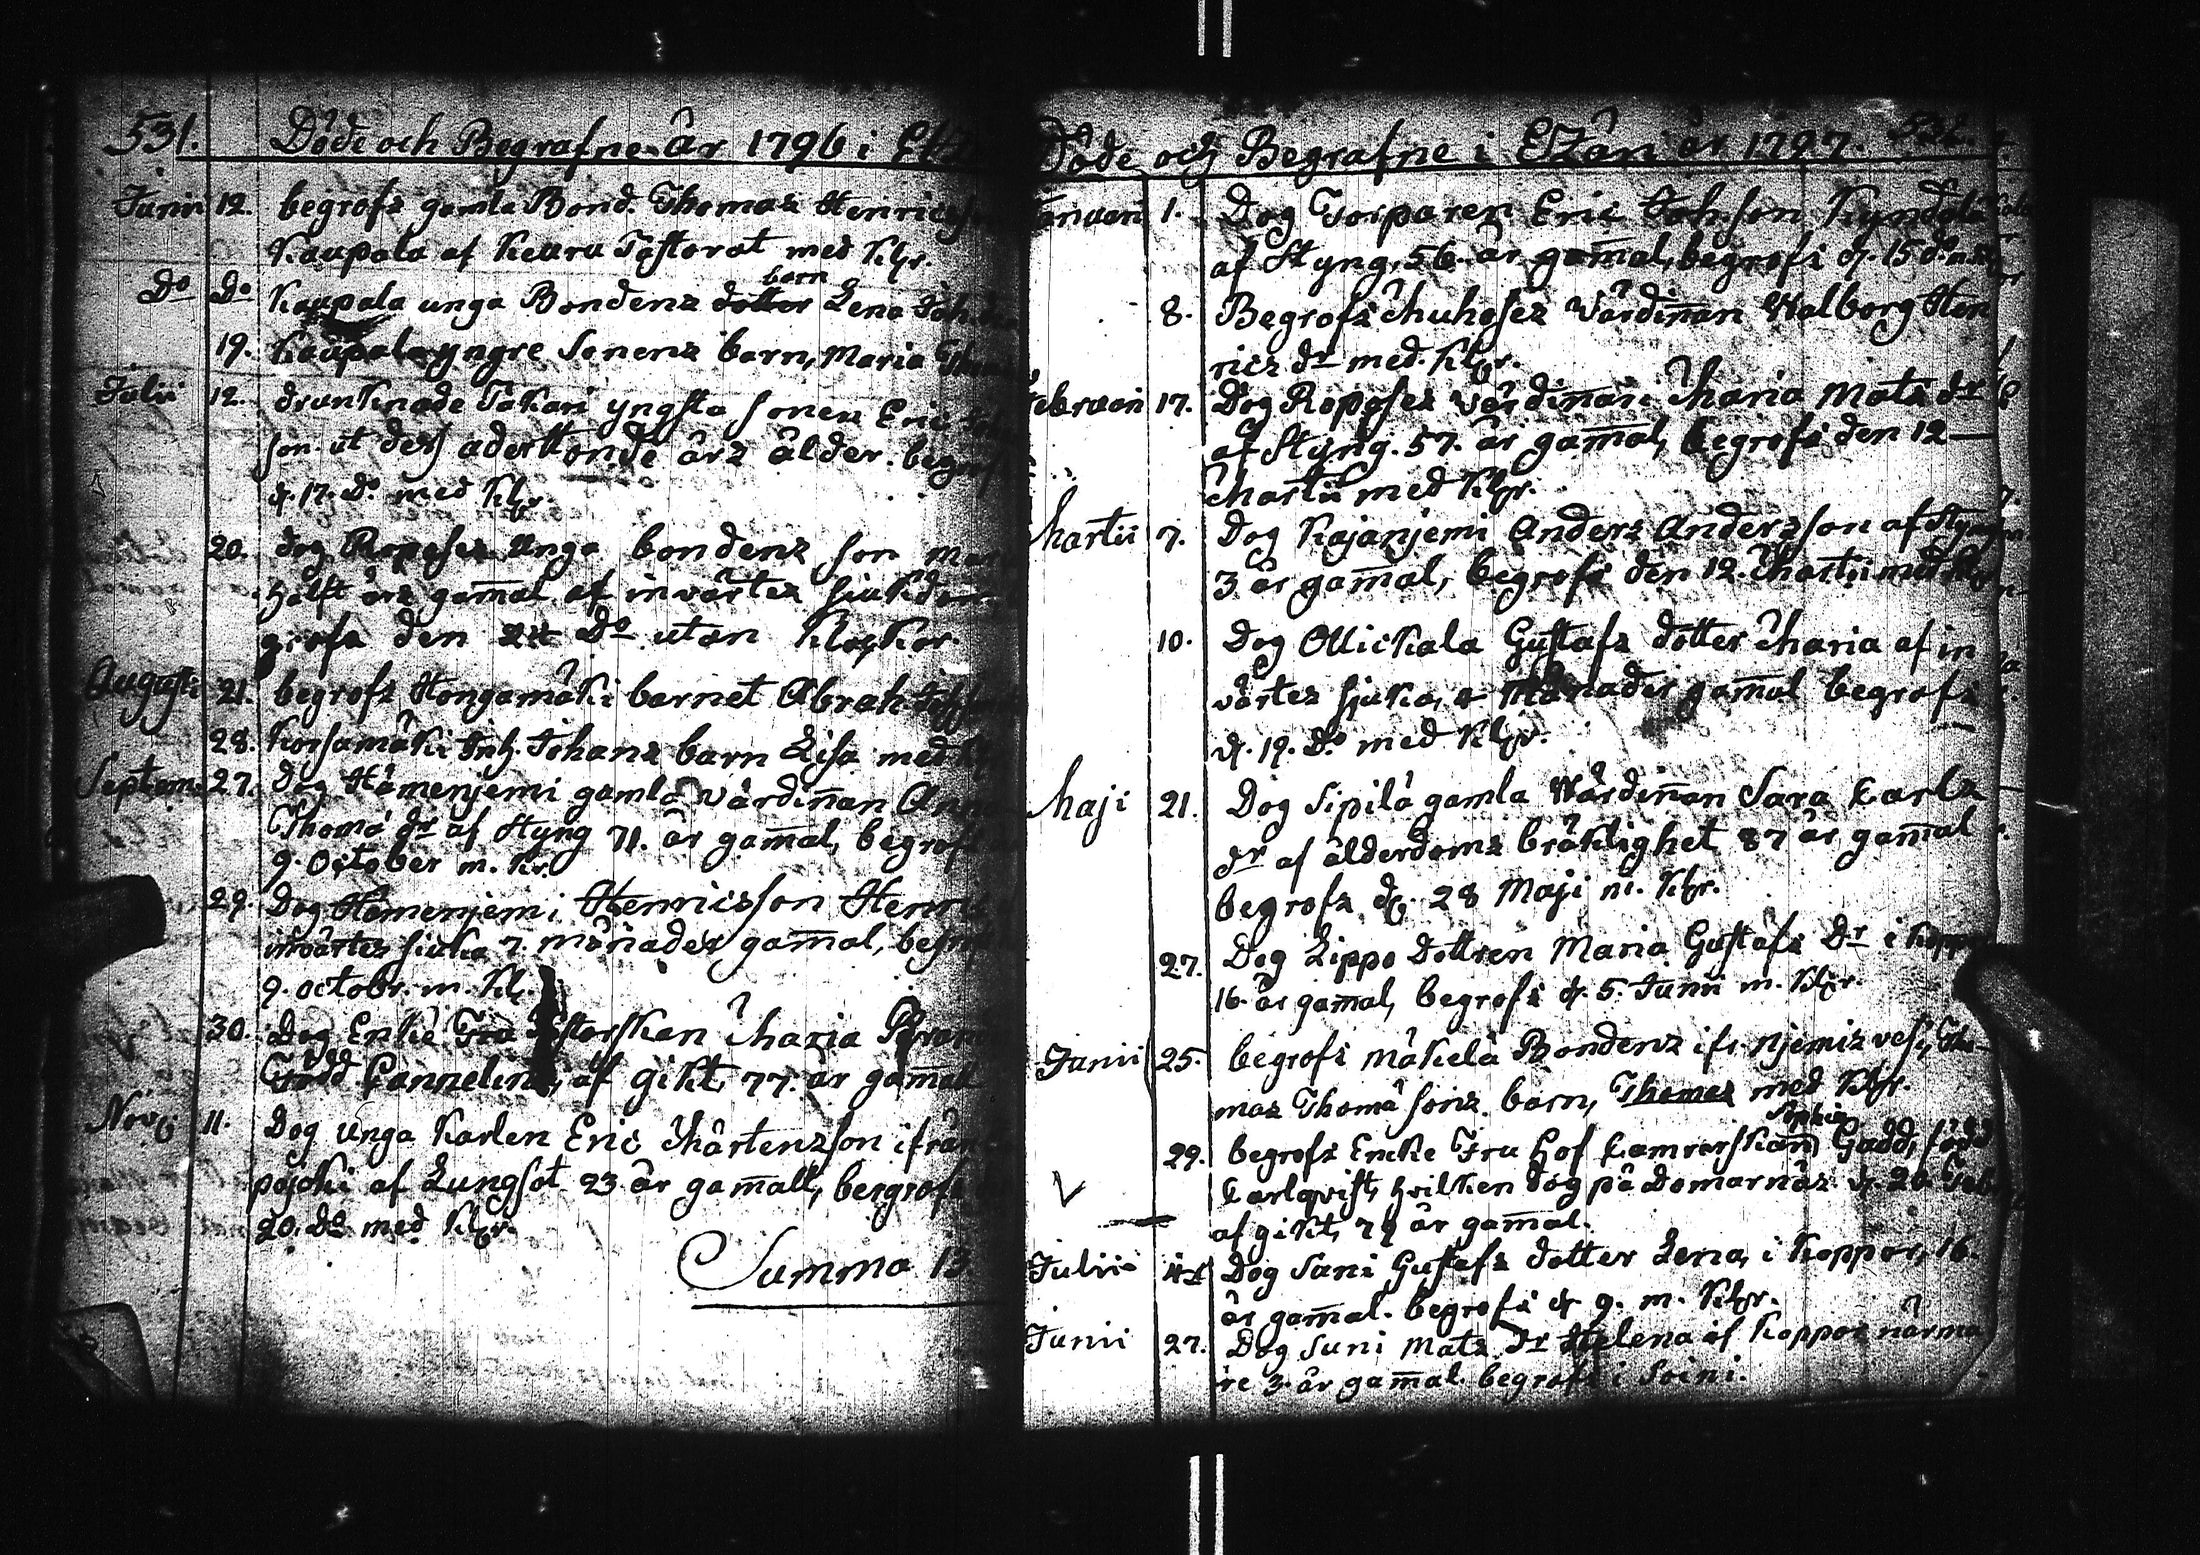 531. Döde och Begrafne år 1796 i
Junii 12. begrofs gamla Bond. Thomas Henrics
Kaupala af Keuru Pastorat med Klr.
Do Do Kaupala unga Bondens dotter barn Lena Joh
19. Kaupala yngre Sonens barn, Maria
Julii 12. drunknade Takari yngsta sonen Eric
son. ut dess aderttonde års ålder. begrof
d. 17. do med Klr.
20. dog Roposes unga bondens son
half års gamal af invärtes siukdom
grofs den 24 Do utan Klockor.
Augusti 21. begrofs Hongamäki barnet Abrah
28. Korsamäki Inh. Johans barn Lisa med
Septem. 27. dog Hämenjemi gamla värdinan Anna
Thoma dr af Styng 71. år gamal, begrof
9. October m. Kr.
29. Dog Hämenjemi Henricsson
invärtes siuka 7. månader gamal,
9. octobr. m. Kl.
30. Dog Enke Fru Maria
född af gikt, 77. år gamal
Nov. 11. Dog unga Karlen Eric Mårtensson ifrån
pajoki af Lungsot 23 år gamall, bergrofs
20. do med Klr.
Summa 13.
Döde och Begrafne i Etzän år 1797. 532.
Januari 1. Dog Torparen Eric Joh.son
af Styng, 56. år gamal, begrofs d. 15 do
8. Begrofs Muhoses Värdinan Walborg Hen
rics dr med. Klr.
Februari 17. Dog Roposes värdinan Maria Mats dr
af Styng. 57. år gamal, begrofs den 12
Martii med Klr.
Martii 7. Dog Kajanjemi Anders Andersson af Styng
3 år gamal, begrofs den 12. Martii med
10. Dog Ollickala Gustafs dotter Maria af in
värtes sjuka, 4 Månader gamal begrofs
d. 19. do med Klr.
Maji 21. Dog Sipilä gamla Wärdinan Sara Carls
dr af ålderdoms bräklighet 87 år gamal
begrofs d. 28 Maji m. Klr.
27. Dog Lippo Dottren Maria Gustafs Dr i Koppor
16. år gamal, begrofs d. 5. Junii m. Klr.
Junii 25. begrofs Mäkelä Bondens ifr. Njemisvesi, Tho
mas Thomä sons barn, Thomas med Klr.
29. begrofs Encke Fru Hof Camrerskan Sophia Gadd, född
Carlqvist, hvilken dog på Domarnäs d. 20
af gikt, 79 år gamal.
Julii Dog Suni Gustafs dotter Lena, i Koppor, 16.
år gamal. begrofs d. 9. m. Klr.
Junii 27. Dog Suni Mats dr Helena af Koppor närma
re 3. år gamal. begrofs i Soini.